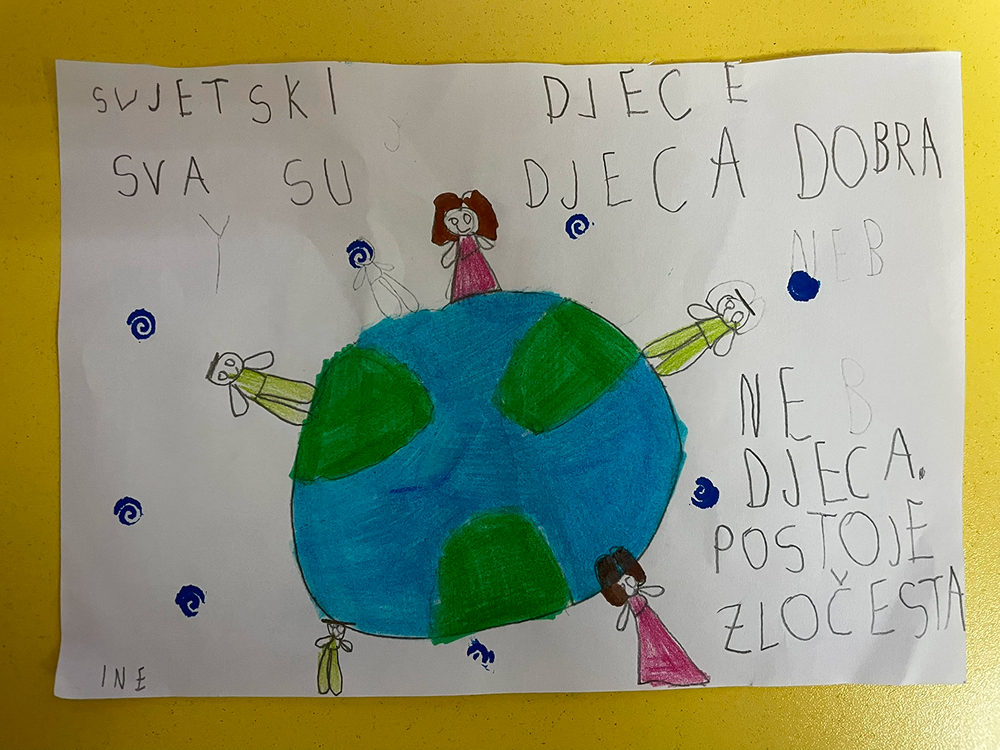 SVJETSKI DJECE
SVA SU DJECA DOBRA
Y
NEB
NE B
DJECA.
POSTOJE
ZLOČESTA
INE